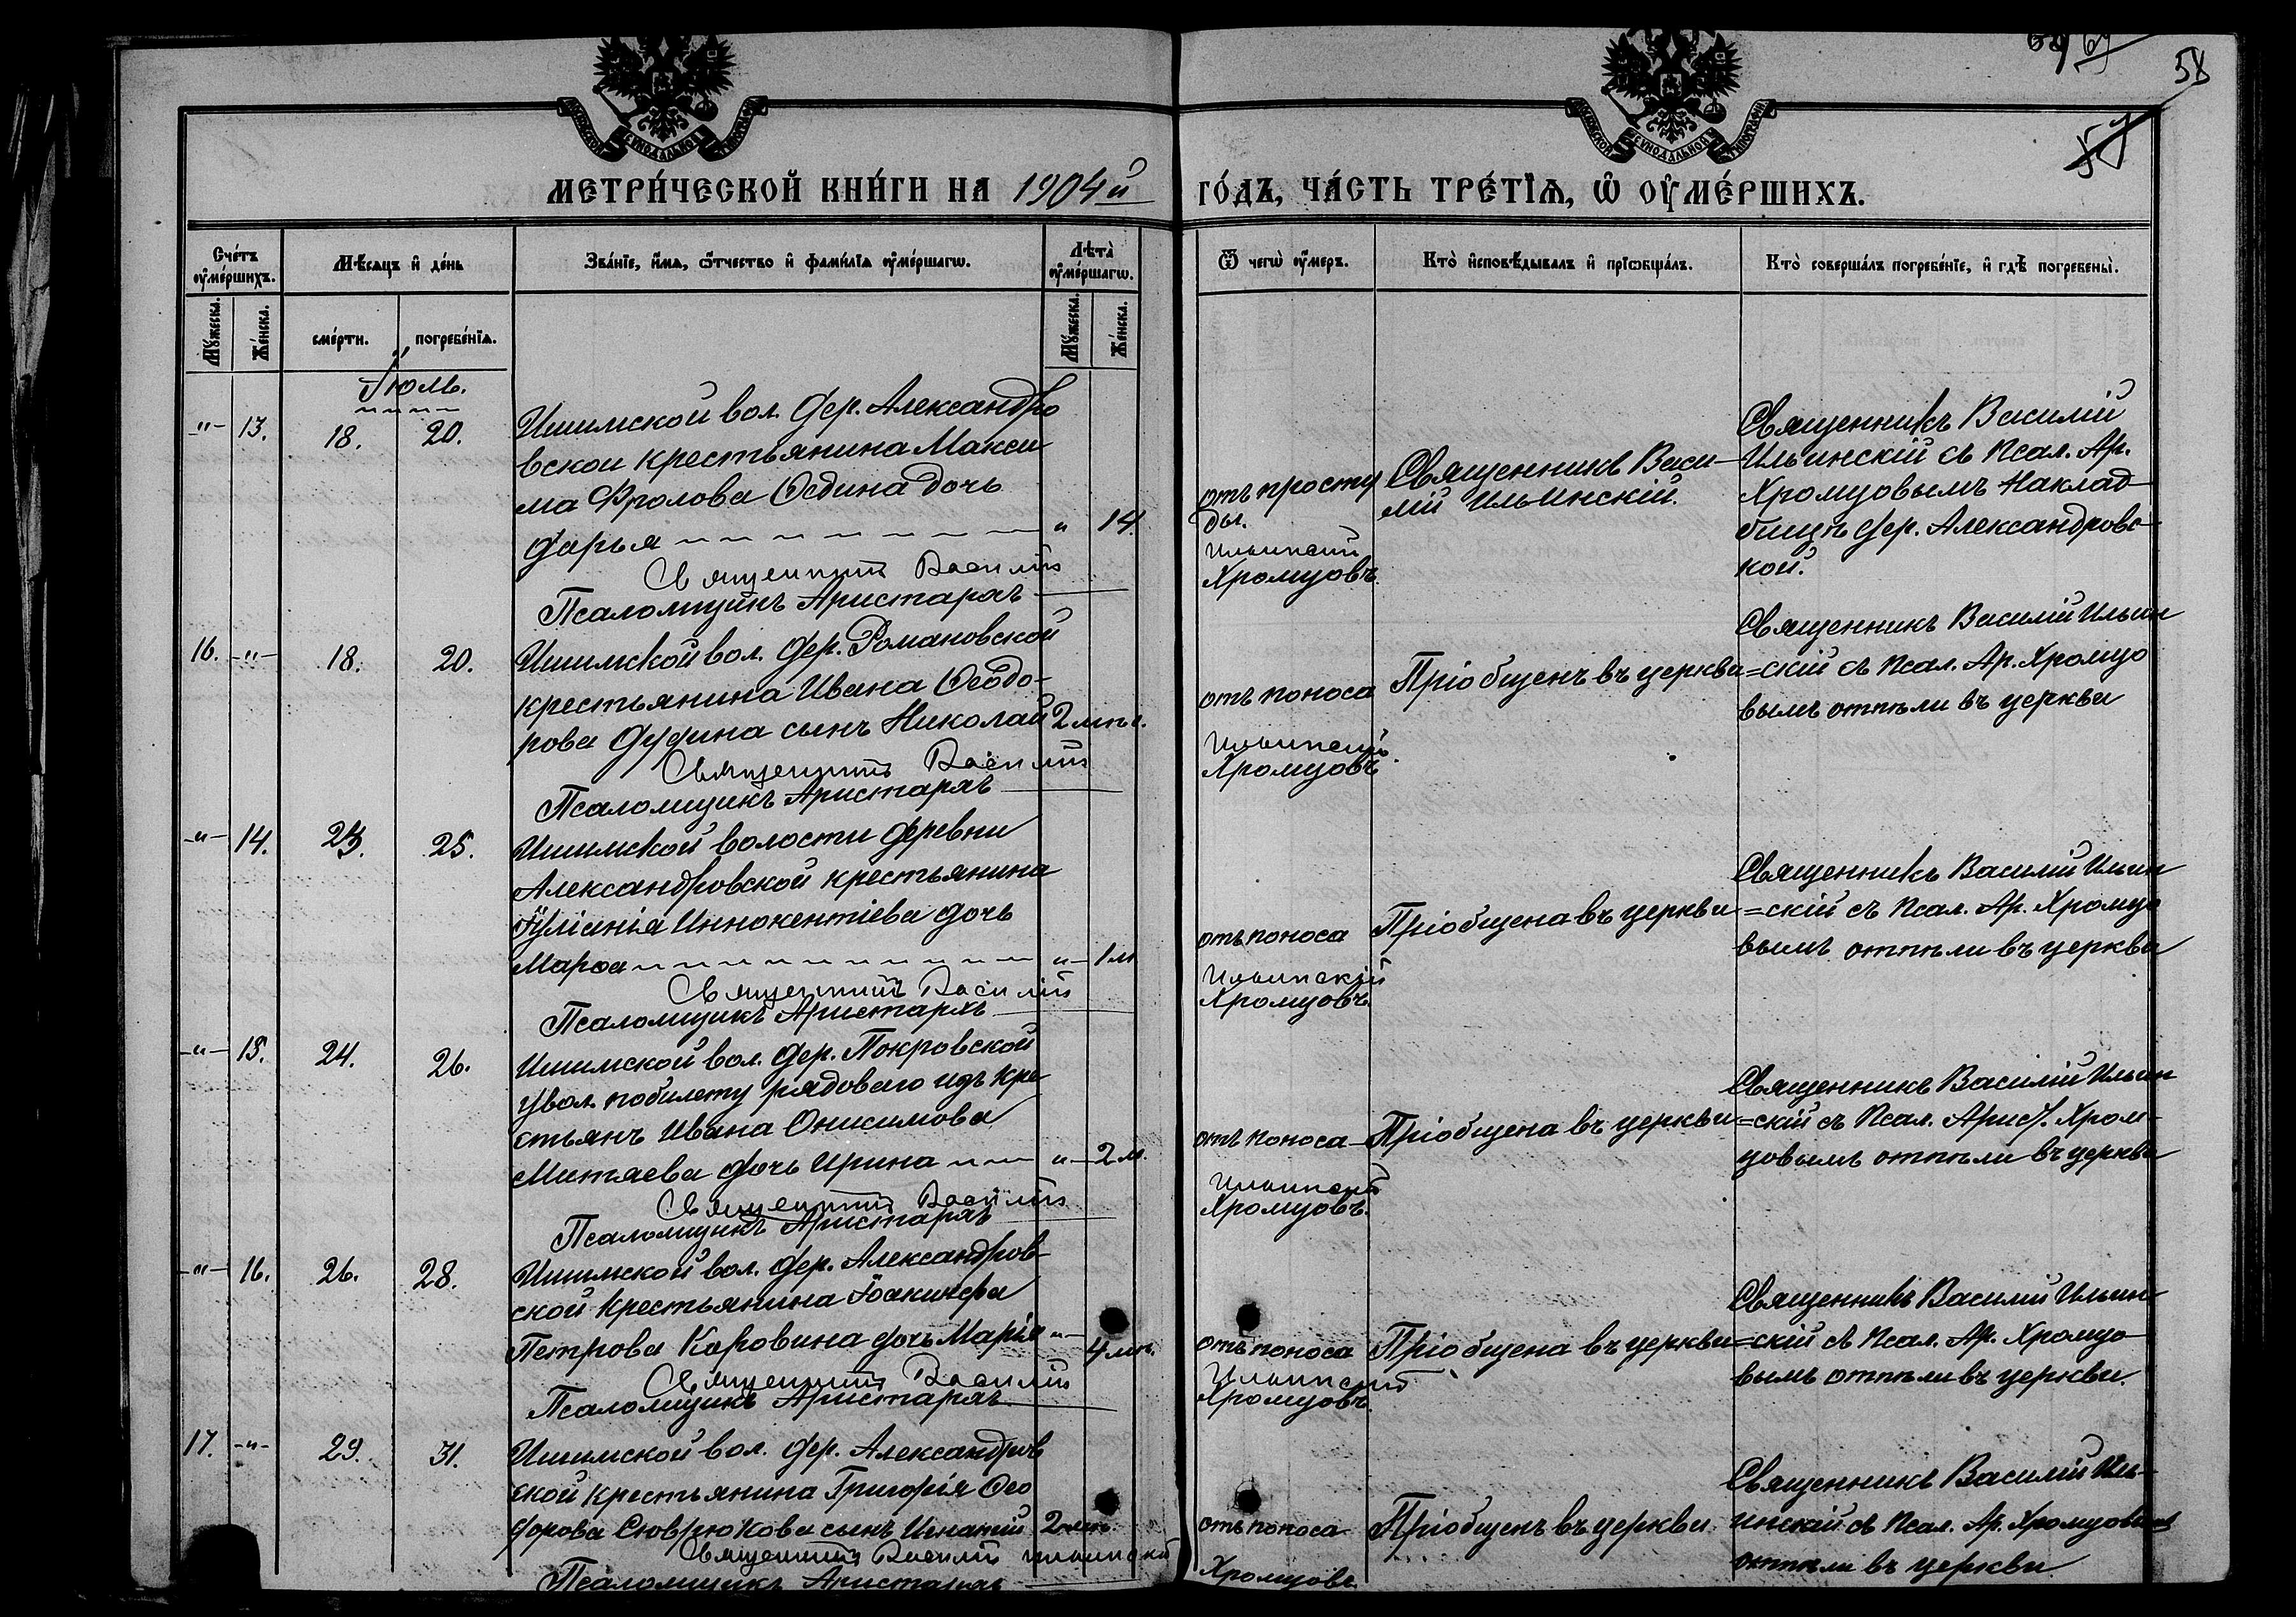 58
МЕТРИ́ЧЕСКОЙ КНИ́ГИ НА 1904й ГО́ДЪ, ЧА́СТЬ ТРЕ́ТІѦ, Ѡ ОУМЕ́РШИХЪ.
Сче́тъ оуме́ршихъ.
Мѣсѧцъ и де́нь
Зва́нїе, и́мѧ, ѻ́тчество и фами́лїѧ оуме́ршагѡ.
Лѣта̀ оуме́ршагѡ.
Ѿ чегѡ̀ оу́меръ.
Кто̀ исповѣ́дывалъ и прїѡбща́лъ.
Кто̀ соверша́лъ погребе́нїе, и гдѣ̀ погребены̀.
Мꙋ́жеска.
Же́нска.
сме́рти.
погребе́нїѧ.
Мꙋ́жеска.
Же́нска.
Іюль.
-"- 13. 18. 20.
Ишимской вол. дер. Александро
вской крестьянина Макси
ма Фролова Осдина дочь
Дарья " 14.
Священникъ Василій
Псаломщикъ Аристархъ
отъ просту
ды.
Ильинскій
Хромцовъ.
Священникъ Васи-
лій Ильинскій.
Священникъ Василій
Ильинскій съ Псал. Ар.
Хромцовымъ на клад-
бищѣ дер. Александровс-
кой.
16. -"- 18. 20.
Ишимской вол. дер. Романовской
крестьянина Ивана Ѳеодо-
рова Дудина сынъ Николай 2 лѣт.
Священникъ Василій
Псаломщикъ Аристархъ
отъ поноса
Ильинскій
Хромцовъ
Пріобщенъ въ церкви
Священникъ Василій Ильин
=скій съ Псал. Ар. Хромцо
вымъ отпѣли въ церкви
-"- 14. 23. 25.
Ишимской волости деревни
Александровской крестьянина
Іуліанія Иннокентіева дочь
Марѳа " 1 м
Священникъ Василій
Псаломщикъ Аристархъ
отъ поноса
Ильинскій
Хромцовъ.
Пріобщена въ церкви
Священникъ Василій Ильин
=скій съ Псал. Ар. Хромцо
вымъ отпѣли въ церкви
-"- 15. 24. 26.
Ишимской вол. дер. Покровской
увол. по билету рядового изъ кре
стьянъ Ивана Онисимова
Митяева дочь Ирина " 2 м.
Священникъ Василій
Псаломщикъ Аристархъ
отъ поноса
Ильинскій
Хромцовъ.
Пріобщена въ церкви
Священникъ Василій Ильин
=скій съ Псал. Арист. Хром-
цовымъ отпѣли въ церкви
-"- 16. 26. 28.
Ишимской вол. дер. Александров-
ской крестьянина Іоакима
Петрова Каровина дочь Марія " 4 лѣт.
Священникъ Василій
Псаломщикъ Аристархъ
отъ поноса
Ильинскій
Хромцовъ.
Пріобщена въ церкви
Священникъ Василій Ильин
=скій съ Псал. Ар. Хромцо
вымъ отпѣли въ церкви.
17. -"- 29. 31.
Ишимской вол. дер. Александров
ской крестьянина Григорія Ѳео
дорова Севрюкова сынъ Игнатій 2 лѣт
Священникъ Василій Ильинскій
Псаломщикъ Аристархъ
отъ поноса
Хромцовъ
Пріобщенъ въ церкви.
Священникъ Василій Иль-
инскій съ Псал. Ар. Хромцовымъ
отпѣли въ церкви